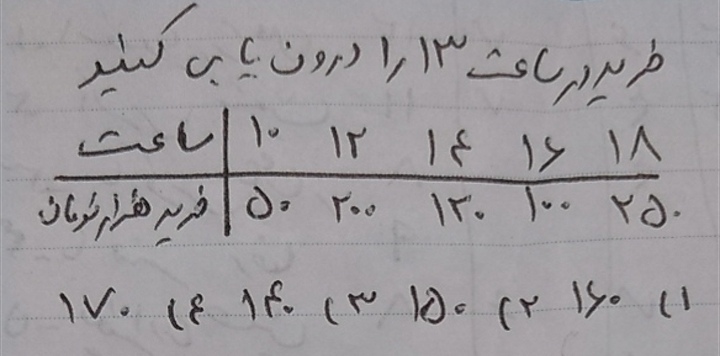 خرید در ساعت ۱۳ را درون یابی کنید
ساعت ۱۰ ۱۲ ۱۴ ۱۶ ۱۸
خرید هزار تومان ۵۰ ۲۰۰ ۱۲۰ ۱۰۰ ۲۵۰
۱) ۱۶۰ ۲) ۱۵۰ ۳) ۱۴۰ ۴) ۱۷۰